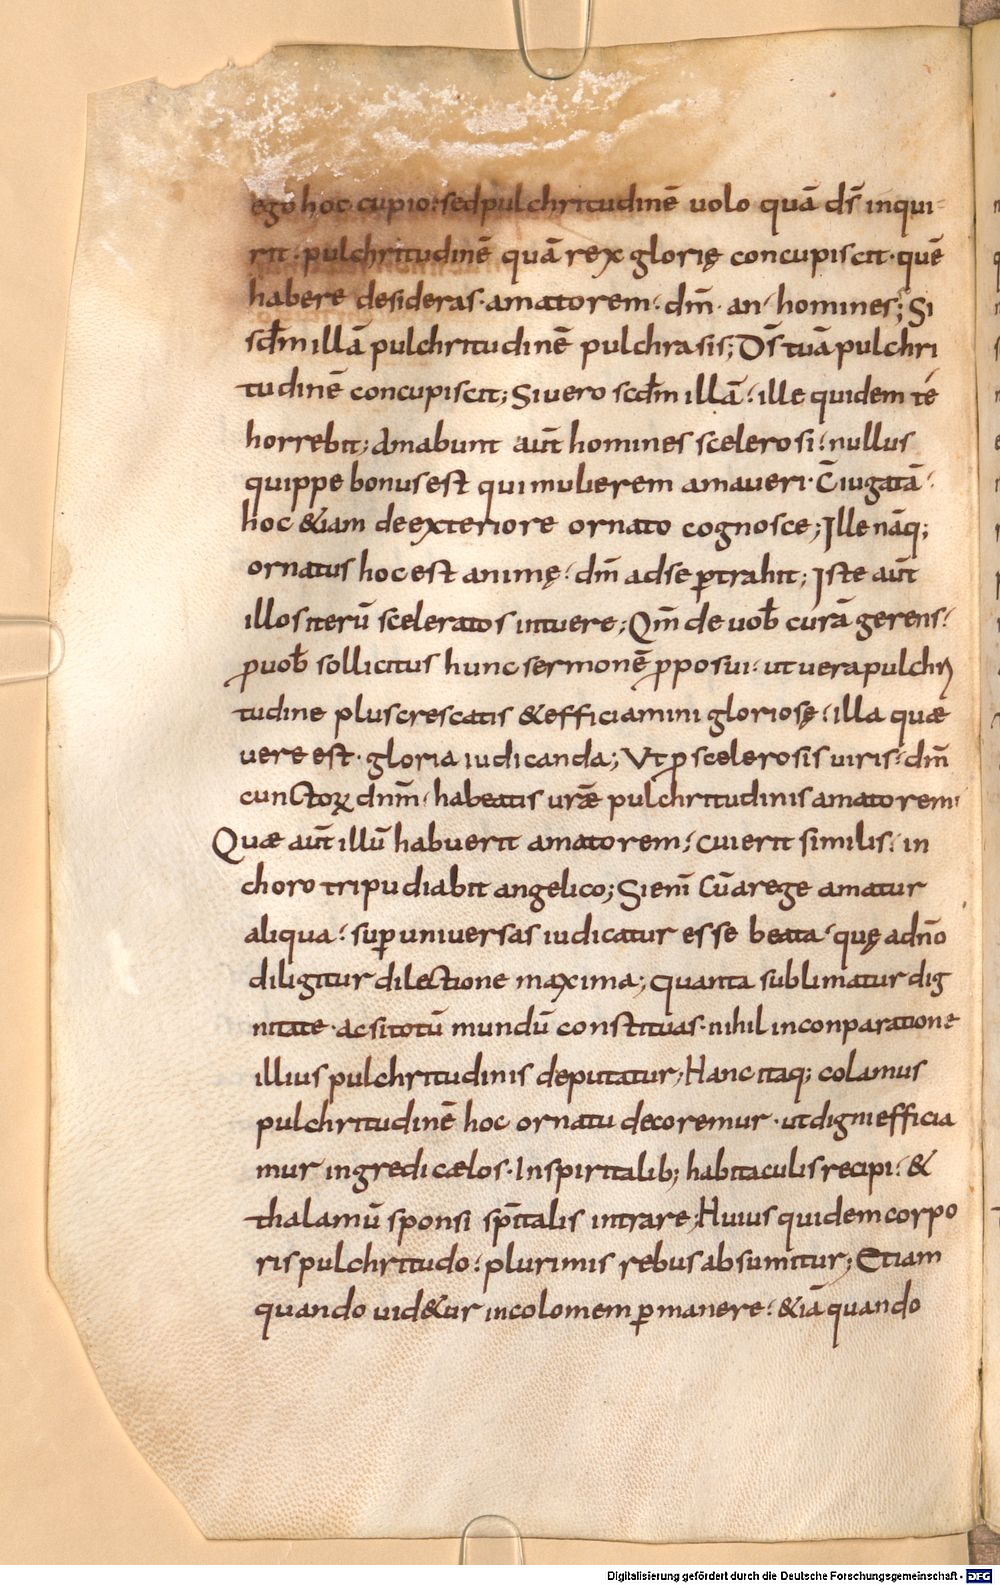 ego hoc cupio: sed pulchritudinē uolo quā dſ̄ inqui-
rit· pulchritudinē quā rex glorię concupiscit· quē
habere desideras· amatorem· dm̄· an· homines; Si
scđm illā pulchritudinē pulchra sis; Dſ̄ tuā pulchri
tudinē concupiscit; Si uero scđm illā· ille quidem té
horrebit; Amabunt aūt homines scelerosi· nullus
quippe bonus est qui mulierem amaueri· C̄iugatā·
hoc &iam de exteriore ornato cognosce; Ille nāq;
ornatus hoc est animę· dm̄ ad se ꝑtrahit; Iste aūt
illos iterū sceleratos intuere; Qm̄ de uob̄ curā gerens·
ꝓ uob̄ sollicitus hunc sermonē ꝓposui· ut uera pulchri
tudine plus crescatis & efficiamini gloriosę· illa quæ
uere est· gloria iudicanda; Ut ꝓ scelerosis uiris· dm̄
cunctoꝝ dnm̄· habeatis urǣ pulchritudinis amatorem·
Quæ aūt illū habuerit amatorem· cui erit similis· in
choro tripudiabit angelico; Si enī cū a rege amatur
aliqua· suꝑ uniuersas iudicatur esse beata· quę a dn̄o
diligitur dilectione maxima; quanta sublimatur dig
nitate· ac si totū mundū constituas· nihil in conparatione
illius pulchritudinis deputatur; Hanc itaq; colamus
pulchritudinē hoc ornatu decoremur· ut digni efficia
mur ingredi cælos· In spiritalib; habitaculis recipi· &
thalamū sponsi sp̄italis intrare; Huius quidem corpo
ris pulchritudo· plurimis rebus absumitur; Etiam
quando uid&ur incolomem ꝑmanere· &iā quando
Digitalisierung gefördert durch die Deutsche Forschungsgemeinschaft - DFG